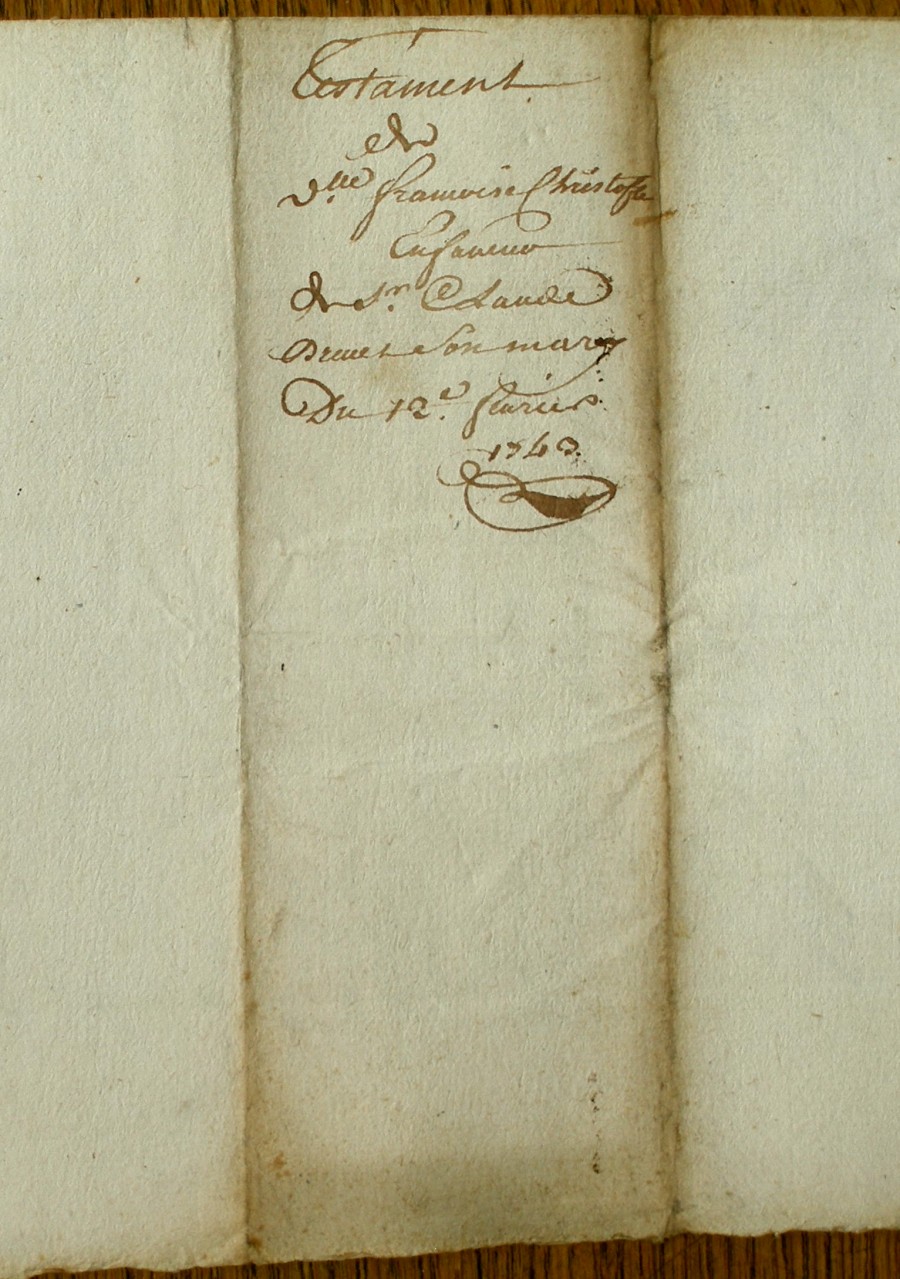 Testament
de
Dlle francoise Christofle
En faveur
de Sr. Claude
son mary
Du 12e. fevrier
1743.